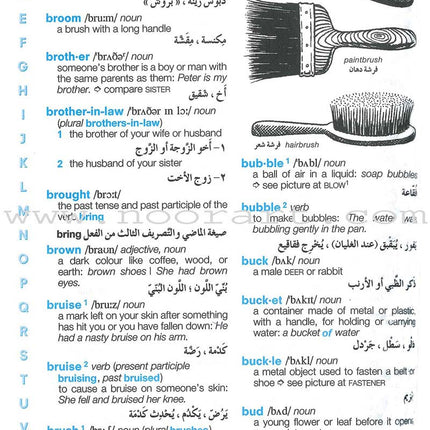 دبوس زينة ، « بروش »
broom /bruːm/ noun
a brush with a long handle
مِكنسة ، مِقَشَّة
broth·er /brʌðəʳ/ noun
someone's brother is a boy or man with
the same parents as them: Peter is my
brother. ❖ compare SISTER
أخ ، شقيق
brother-in-law /brʌðər ɪn lɔː/ noun
(plural brothers-in-law)
1 the brother of your wife or husband
١- أخو الزَّوجة أو الزَّوج
2 the husband of your sister
٢- زوج الأخت
brought /brɔːt/
the past tense and past participle of the
verb bring
صيغة الماضي والتصريف الثالث من الفعل bring
brown /braʊn/ adjective, noun
a dark colour like coffee, wood, or
earth: brown shoes | She had brown
eyes.
بُنِّيّ اللون ؛ اللون البُنِّيّ
bruise¹ /bruːz/ noun
a mark left on your skin after something
has hit you or you have fallen down: He
had a nasty bruise on his arm.
كَدْمة ، رَضَّة
bruise² verb (present participle
bruising, past bruised)
to cause a bruise on someone's skin:
She fell and bruised her knee.
يَرُضّ ، يَكْدُم ، يُحْدِث كَدْمة
E
F
G
H
I
J
K
L
M
N
O
P
Q
R
S
T
U
V
paintbrush
فرشة دهان
hairbrush
فرشة شعر
bub·ble¹ /bʌbl/ noun
a ball of air in a liquid: soap bubbles
❖ see picture at BLOW¹
فُقَّاعة
bubble² verb
to make bubbles: The water was
bubbling gently in the pan.
يَفور ، يُبَقْبِق (عند الغليان) ، يُخْرِج فقاقيع
buck /bʌk/ noun
a male DEER or rabbit
ذكر الظَّبي أو الأرنب
buck·et /bʌkɪt/ noun
a container made of metal or plastic
with a handle, for holding or carrying
water: a bucket of water
دَلو ، سَطْل ، جَرْدل
buck·le /bʌkl/ noun
a metal object used to fasten a belt or
shoe ❖ see picture at FASTENER
bud /bʌd/ noun
a young flower or leaf before it opens